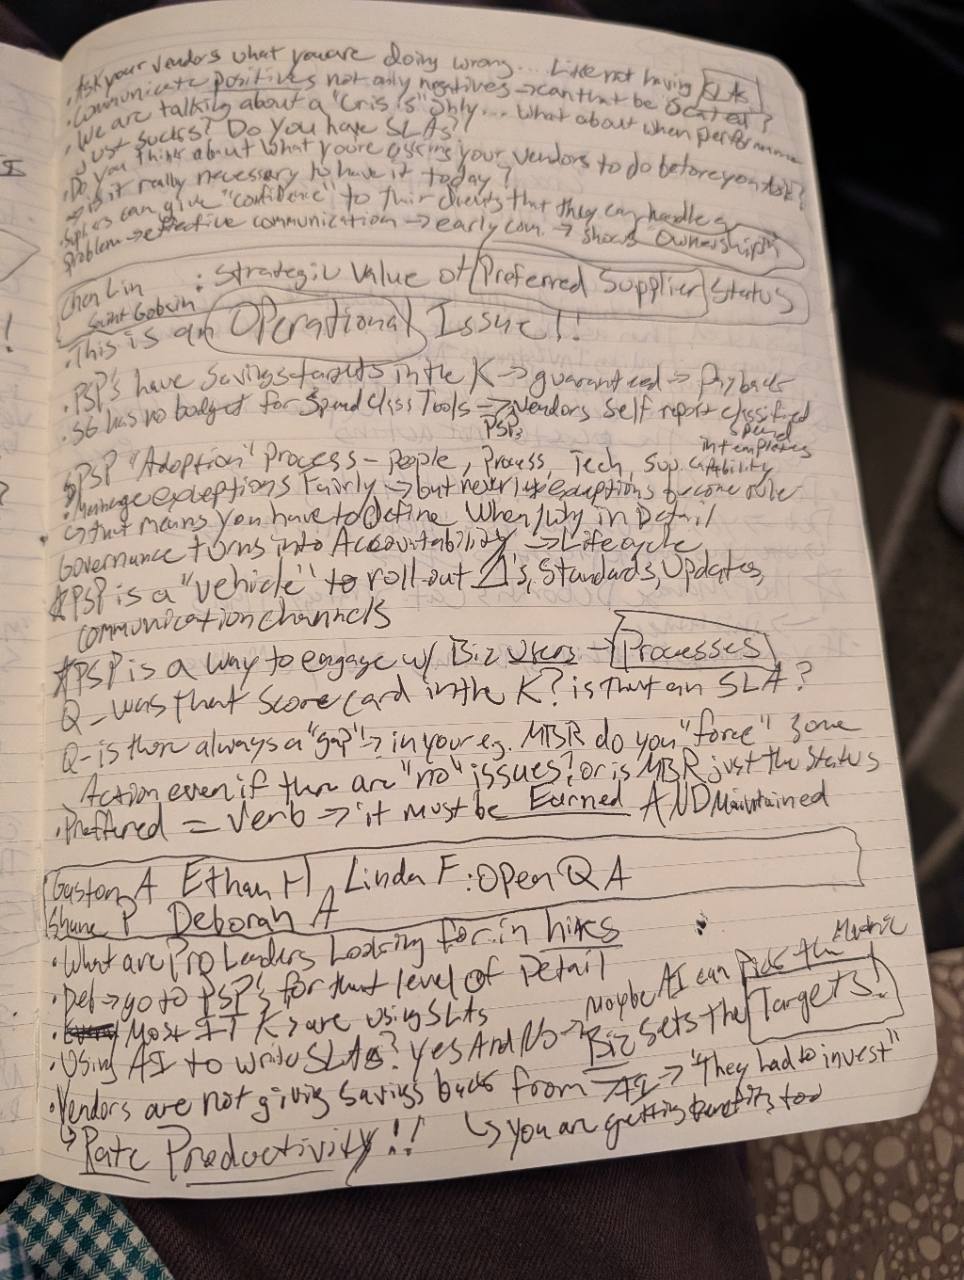 · Ask your vendors what you are doing wrong... Like not having SLAs
· Communicate positives not only negatives → can that be Scaled?
· We are talking about a "Crisis" only... What about when performance
Just sucks? Do you have SLAs?
· Do you think about what you're asking your vendors to do before you ask?
→ is it really necessary to have it today?
· Suppliers can give "confidence" to their clients that they can handle a
problem → effective communication → early com. → shows "Ownership"
Chen Lin : Strategic Value of Preferred Supplier Status
Saint Gobain
· This is an Operational Issue!!
· PSP's have Savings targets in the K → guaranteed → Payback
· SG has no budget for Spend Class Tools → Vendors Self report classified
PSPs
spend
in templates
PSP "Adoption" Process - People, Process, Tech, Sup. Capability
· Manage exceptions Fairly → but never let exceptions become rule
↳ that means you have to Define When/Why in Detail
Governance turns into Accountability → Lifecycle
* PSP is a "vehicle" to roll out Δ's, Standards, Updates,
communication channels
* PSP is a way to engage w/ Biz users → Processes
Q - was that Score card in the K? is that an SLA?
Q - is there always a "gap" → in your e.g. MBR do you "force" some
Action even if there are "no" issues? or is MBR just the Status
· Preffered = Verb → it must be Earned AND Maintained
Gaston A Ethan H, Linda F: Open QA
Shane P Deborah A
· What are Pro Leaders Looking for in hires
· Deb → go to PSP's for that level of Detail
· Most IT Ks are using SLAs
Maybe AI can Pick the Metric
· Using AI to write SLAs? Yes And No → Biz sets the Targets!
· Vendors are not giving Savings back from AI → "They had to invest"
↳ Rate Productivity!!
↳ you are getting benefits too